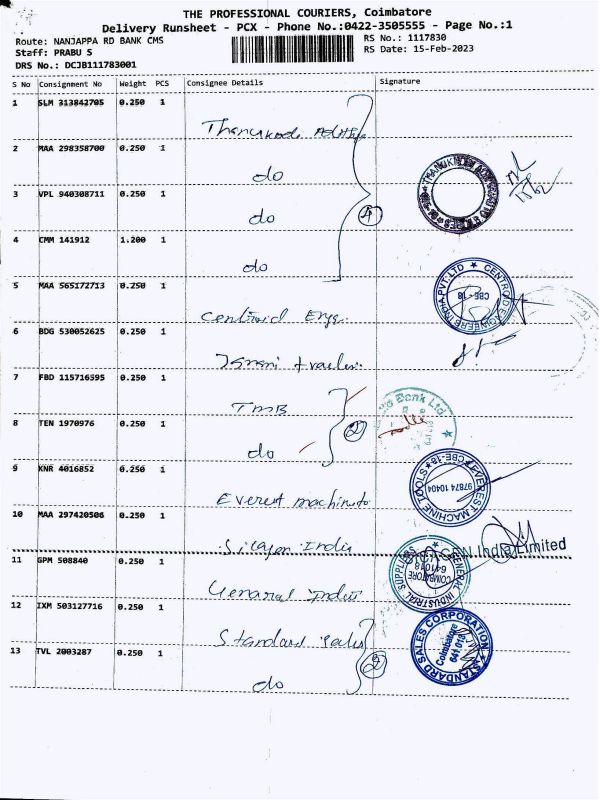 THE PROFESSIONAL COURIERS, Coimbatore
Delivery Runsheet - PCX - Phone No.:0422-3505555 - Page No.:1
Route: NANJAPPA RD BANK CMS
RS No.: 1117830
Staff: PRABU S
RS Date: 15-Feb-2023
DRS No.: DCJB111783001
S No Consignment No Weight PCS Consignee Details Signature
1 SLM 313842705 0.250 1
2 MAA 298358700 0.250 1
do
3 VPL 940308711 0.250 1
do
4 CMM 141912 1.200 1
do
5 MAA 565172713 0.250 1
6 BDG 530052625 0.250 1
7 FBD 115716595 0.250 1
TMB
8 TEN 1970976 0.250 1
do
9 KNR 4016852 0.250 1
Everest
10 MAA 297420506 0.250 1
India Limited
11 GPM 508840 0.250 1
12 IXM 503127716 0.250 1
Standard Sales
13 TVL 2003287 0.250 1
do
CENTROID
CBE - 18
Bank Ltd.
EVEREST MACHINE TOOLS
CBE-18
97874 10404
GENERAL INDUSTRIAL SUPPLIERS
COIMBATORE
641018
STANDARD SALES CORPORATION
Coimbatore
641 018